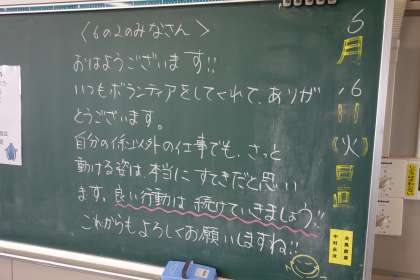 〈6の2のみなさん〉
おはようございます!!
いつもボランティアをしてくれて、ありが
とうございます。
自分の係以外の仕事でも、さっと
動ける姿は本当にすてきだと思い
ます。良い行動は続けていきましょう!!
これからもよろしくお願いしますね!!
6
月
16
日
(火)
日